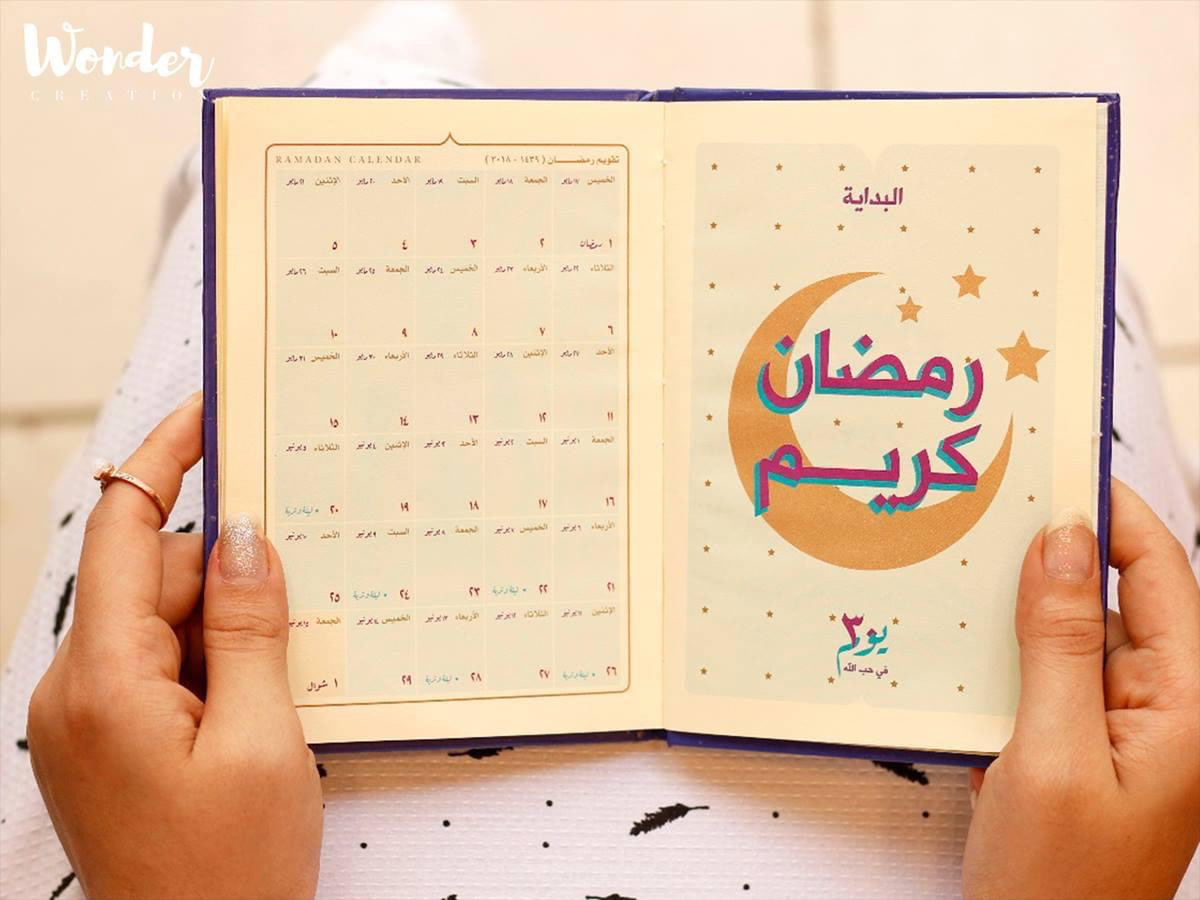 Wonder
CREATION
RAMADAN CALENDAR
تقويم رمضـــــان ( ١٤٣٩ - ٢٠١٨ )
الخميس ١٧ مايو الجمعة ١٨ مايو السبت ١٩ مايو الأحد ٢٠ مايو الإثنين ٢١ مايو
١ رمضان ٢ ٣ ٤ ٥
الثلاثاء ٢٢ مايو الأربعاء ٢٣ مايو الخميس ٢٤ مايو الجمعة ٢٥ مايو السبت ٢٦ مايو
٦ ٧ ٨ ٩ ١٠
الأحد ٢٧ مايو الإثنين ٢٨ مايو الثلاثاء ٢٩ مايو الأربعاء ٣٠ مايو الخميس ٣١ مايو
١١ ١٢ ١٣ ١٤ ١٥
الجمعة ١ يونيو السبت ٢ يونيو الأحد ٣ يونيو الإثنين ٤ يونيو الثلاثاء ٥ يونيو
١٦ ١٧ ١٨ ١٩ ٢٠ • ليلة وترية
الأربعاء ٦ يونيو الخميس ٧ يونيو الجمعة ٨ يونيو السبت ٩ يونيو الأحد ١٠ يونيو
٢١ ٢٢ • ليلة وترية ٢٣ ٢٤ • ليلة وترية ٢٥
الإثنين ١١ يونيو الثلاثاء ١٢ يونيو الأربعاء ١٣ يونيو الخميس ١٤ يونيو الجمعة ١٥ يونيو
٢٦ • ليلة وترية ٢٧ ٢٨ • ليلة وترية ٢٩ ١ شوال
البداية
رمضان
كريـــم
٣٠ يوم
في حب الله